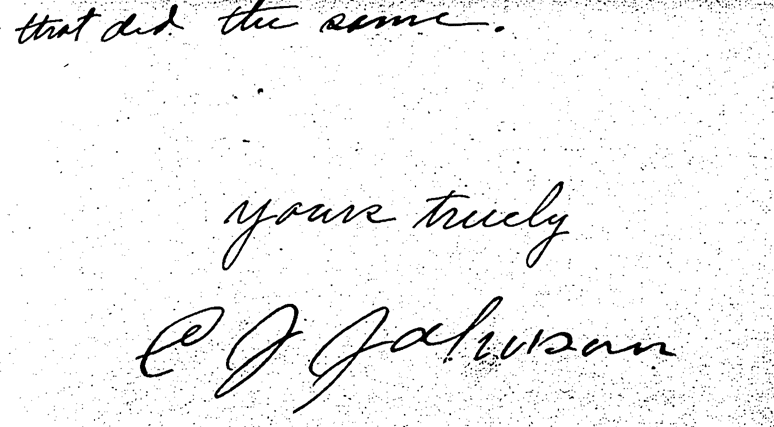 that did the same.
yours truely
C J Johnson